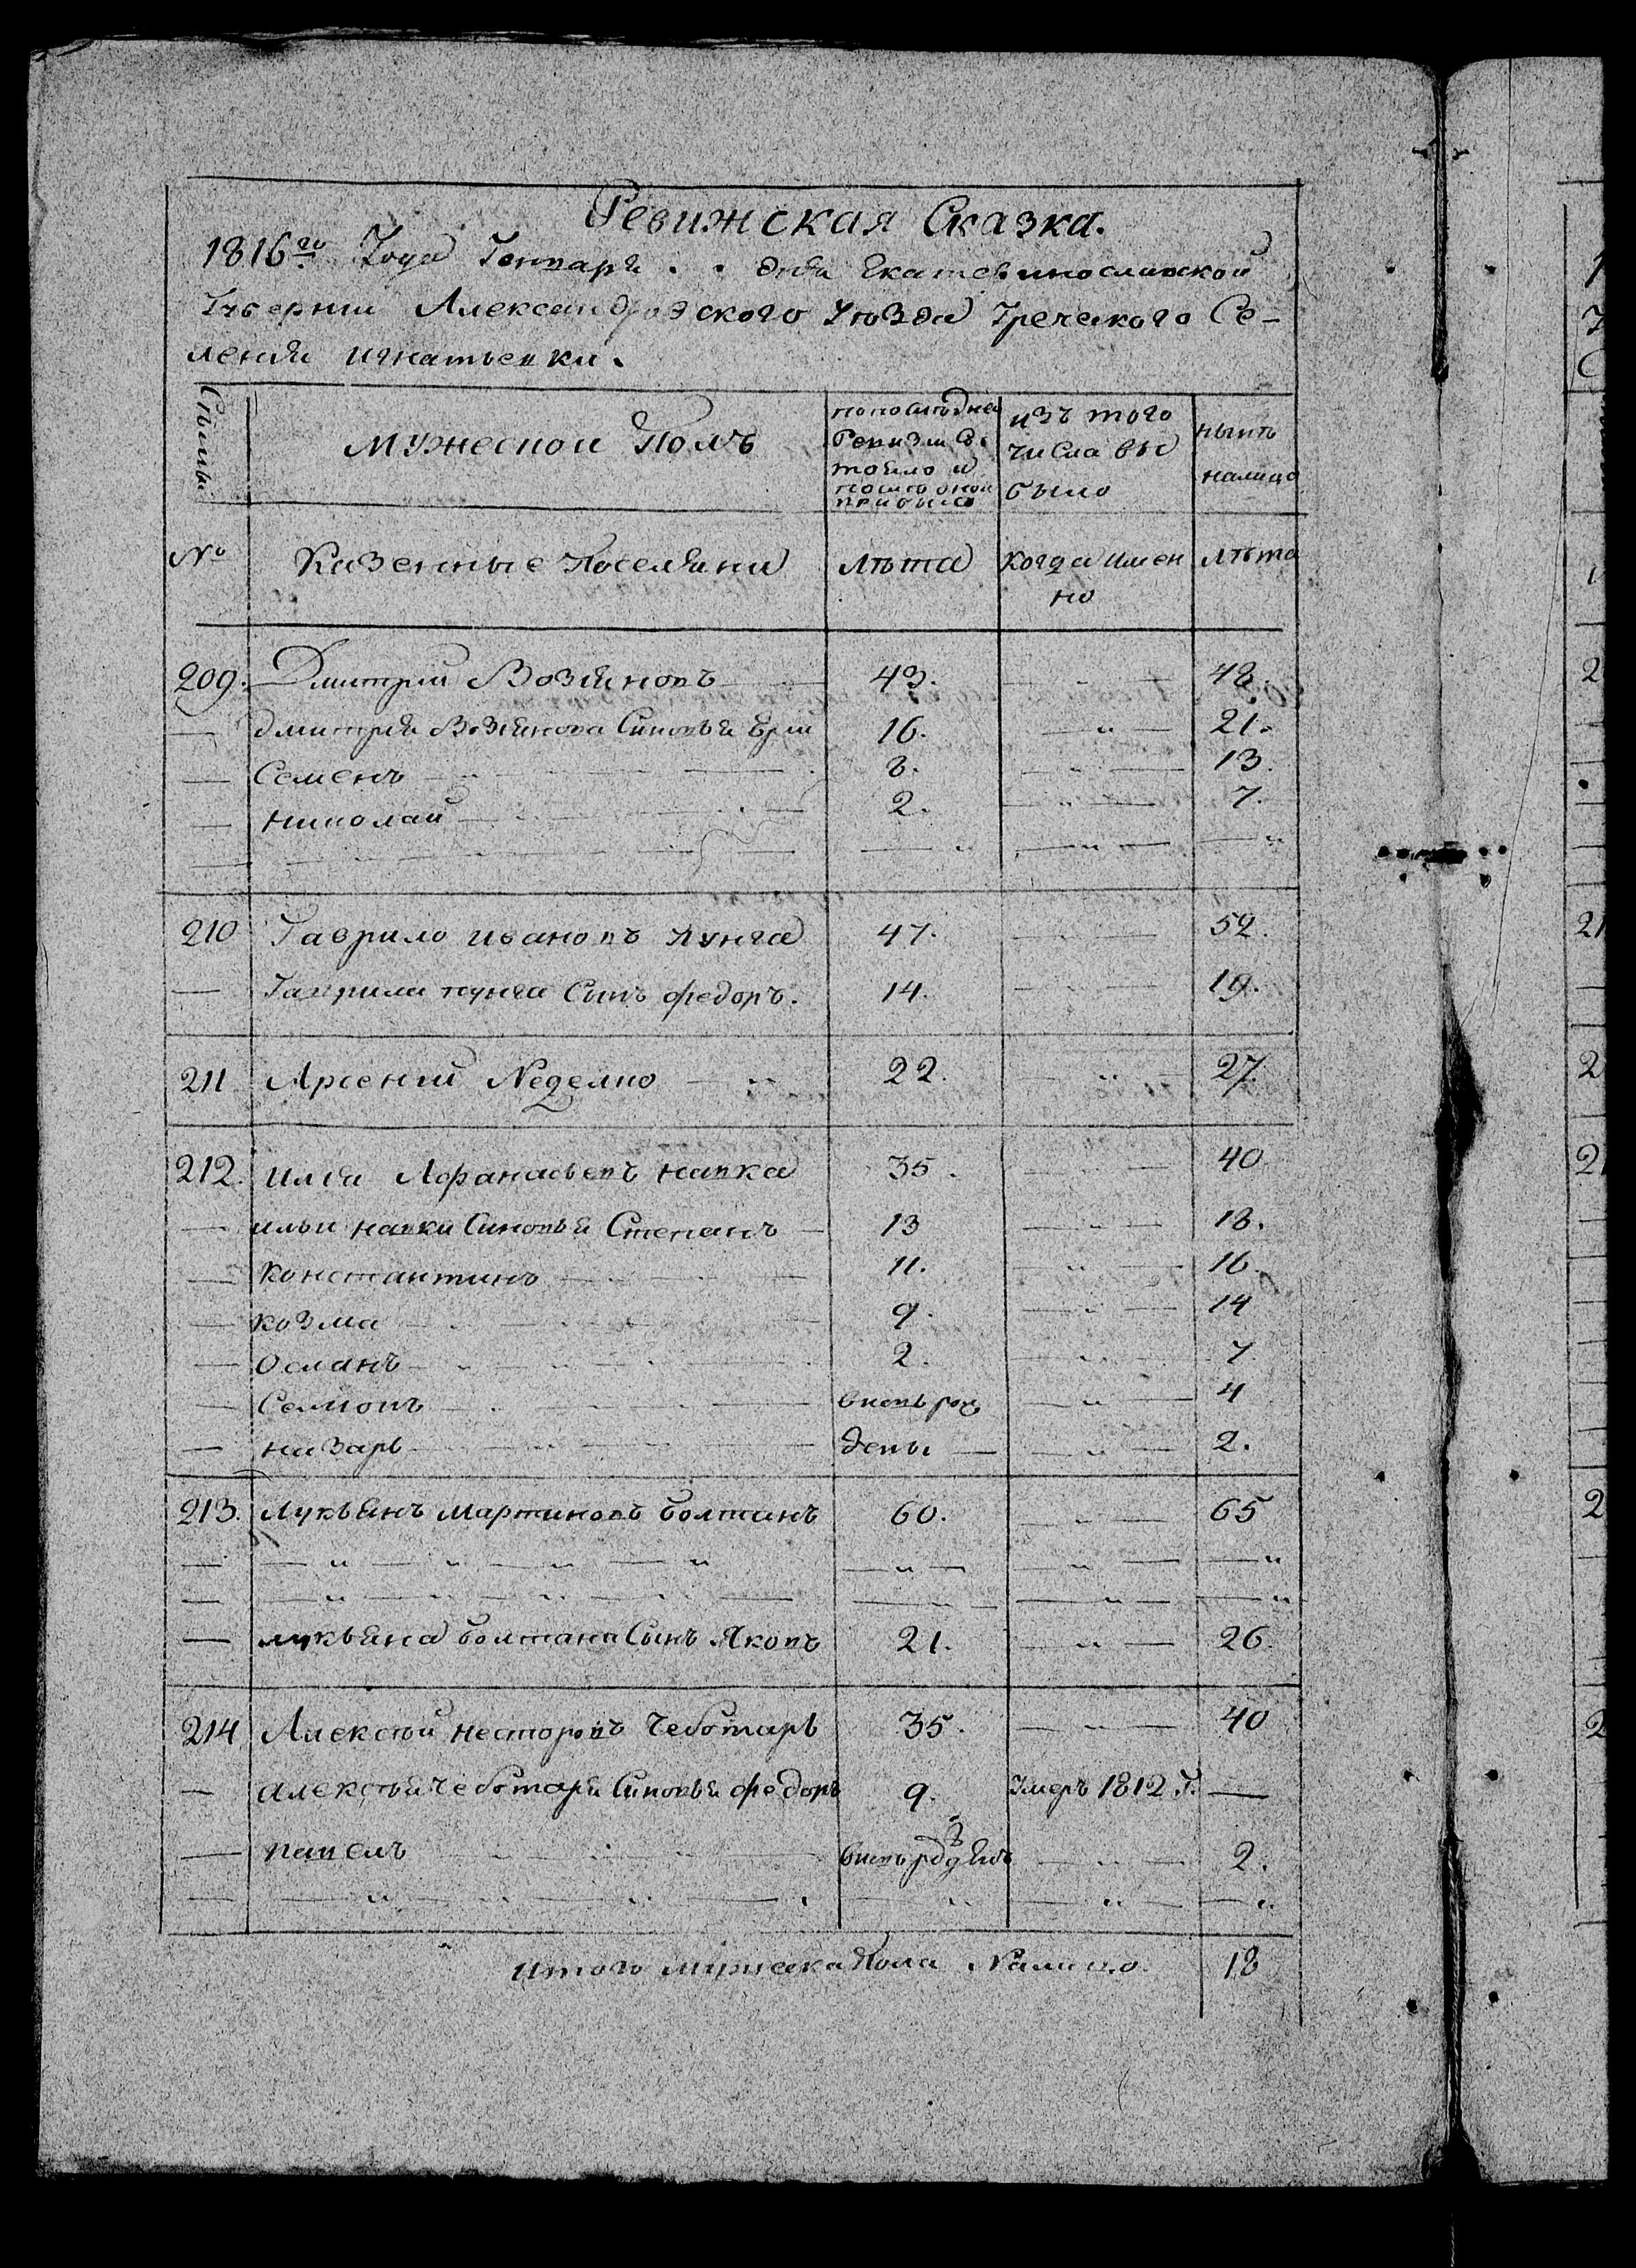 Ревижская Сказка.
1816го Года Генваря . . дня Екатеринославской
Губернии Александровского уѣзда Греческого Се-
ления игнатьевки.
Семьи
мужескои Полъ
попослѣдней Ревизии Состояло и послѣ оной прибыло
изъ того числа выбыло
нынѣ налицо
№
Казенные Поселяни
лѣта
когда имен
но
лѣта
209. Дмитрий Возияновъ 43. — „ — 48.
— дмитрия Возиянова Синовья 16. — „ — 21.
— Семенъ 8. — „ — 13.
— николай 2. — „ — 7.
— „ — „ — „
210 Гаврило ивановъ пунга 47. — „ — 52.
— Гаврили пунги Синъ федоръ. 14. — „ — 19.
211 Арсений Неделко 22. — „ — 27.
212. илия Афанасьевъ навка 35. — „ — 40
— ильи навки Синовья Степанъ 13 — „ — 18.
— константинъ 11. — „ — 16.
— козма 9. — „ — 14
— османъ 2. — „ — 7.
— Семионъ вновь рож — „ — 4
— назарь дены — „ — 2.
213. лукьянъ мартиновъ болтанъ 60. — „ — 65
— „ — „ — „
— „ — „ — „
— лукьяна болтана Сынъ Яковъ 21. — „ — 26.
214 Алексѣй несторовъ Чеботарь 35. — „ — 40
— алексѣя чеботаря Синовья федоръ 9. Умеръ 1812 г. —
— павелъ вновь рожденъ — „ — 2.
— „ — „ — „
итого мужеска Пола Налицо 18